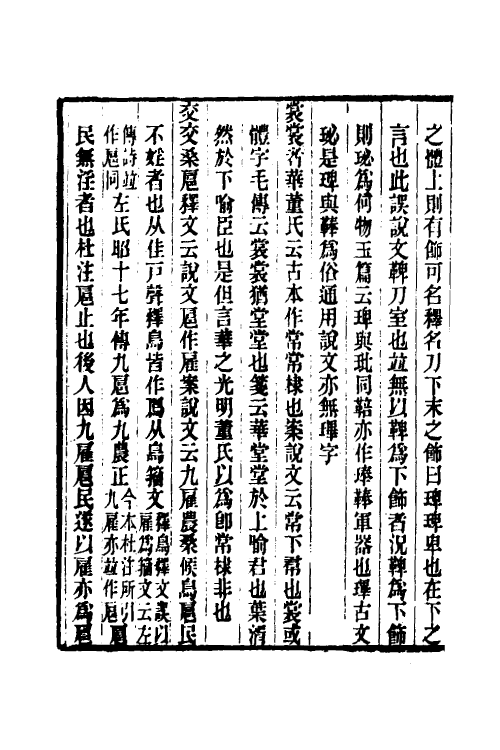 之體上則有飾可名釋名刀下末之飾曰琕琕卑也在下之
言也此誤說文鞞刀室也竝無以鞞爲下飾者況鞞爲下飾
則珌爲何物玉篇云琕與玭同鞛亦作琫鞸軍器也㻫古文
珌是琕與鞸爲俗通用說文亦無㻫字
裳裳者華董氏云古本作常常棣也案說文云常下帬也裳或
體字毛傳云裳裳猶堂堂也箋云華堂堂於上喻君也葉湑
然於下喻臣也是但言華之光明董氏以爲卽常棣非也
交交桑扈釋文云說文扈作雇案說文云九雇農桑候鳥扈民
不婬者也从隹戶聲釋鳥皆作鳸从鳥籀文釋鳥釋文誤以雇爲籀文云左
傳詩竝作扈同左氏昭十七年傳九扈爲九農正今本杜注所引九雇亦竝作扈
民無淫者也杜注扈止也後人因九雇扈民遂以雇亦爲扈